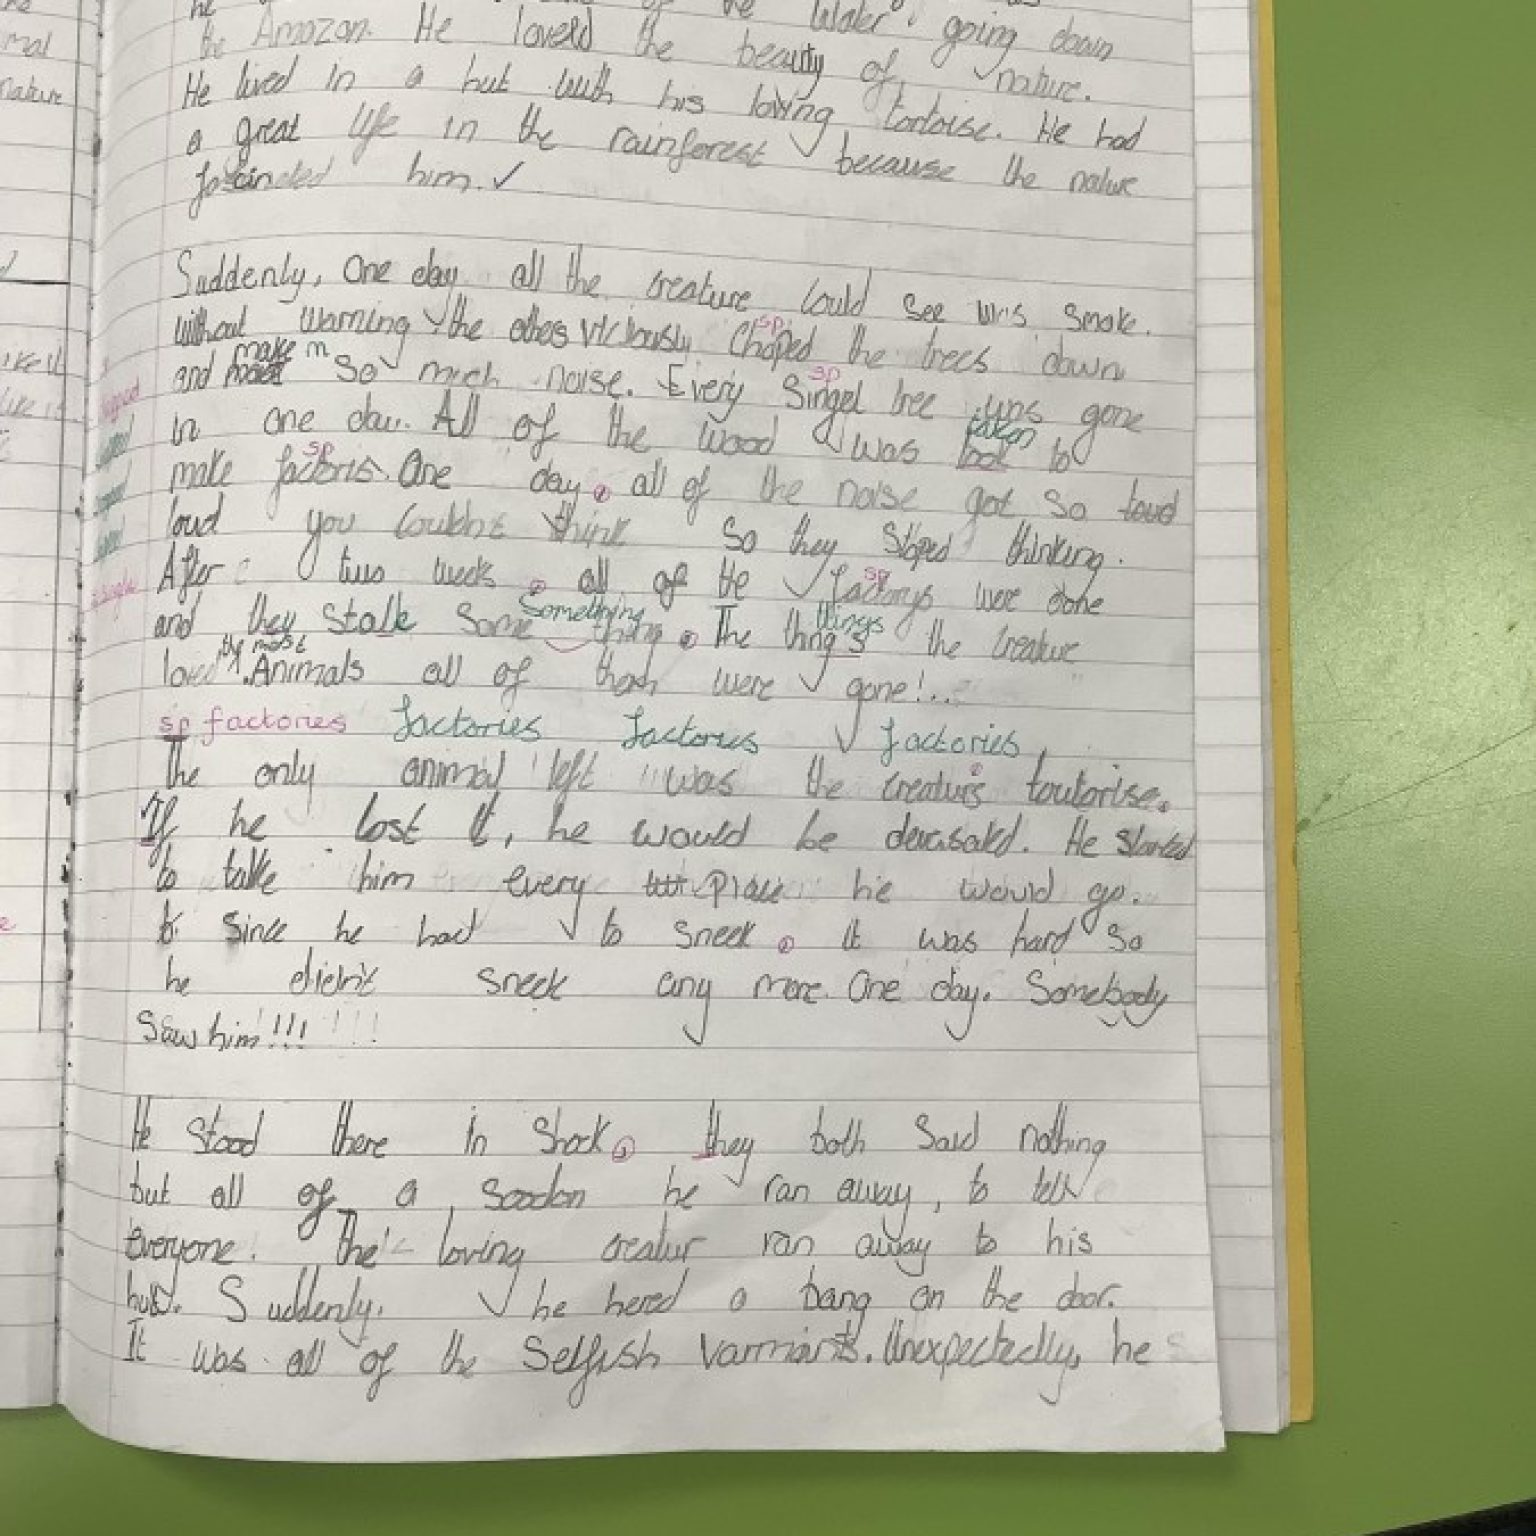 he of the water going down
the Amazon. He loveld the beauty of nature.
He lived in a hut with his loving tortoise. He had
a great life in the rainforest because the nature
him. ✓
Suddenly, One day all the creature could see was smoke.
sp.
without warning the others viciously Chaped the trees down
make m sp
and so much noise. Every Singel tree was gone
taken
in one day. All of the wood was took to
sp
make factoris. One day, all of the noise got so loud
loud you couldn't think so they stoped thinking.
sp
After two weeks, all of the factorys were done
Something things
and they stalle some thing. The thing's the creature
the most
loved. Animals all of them were gone!..
sp factories factories factories factories
The only animal left was the creature's toutorise.
If he lost it, he would be devasated. He started
to take him every place he would go.
since he had to sneek, it was hard so
he didn't sneek any more. One day. Somebody
saw him!!! !!!
He stood there in shock. they both said nothing
but all of a sooden he ran away, to tell
everyone. The loving creatur ran away to his
hut. Suddenly. he hered a bang on the door.
It was all of the selfish varmints. Unexpectedly, he
mal
nature
ike it
like it
single